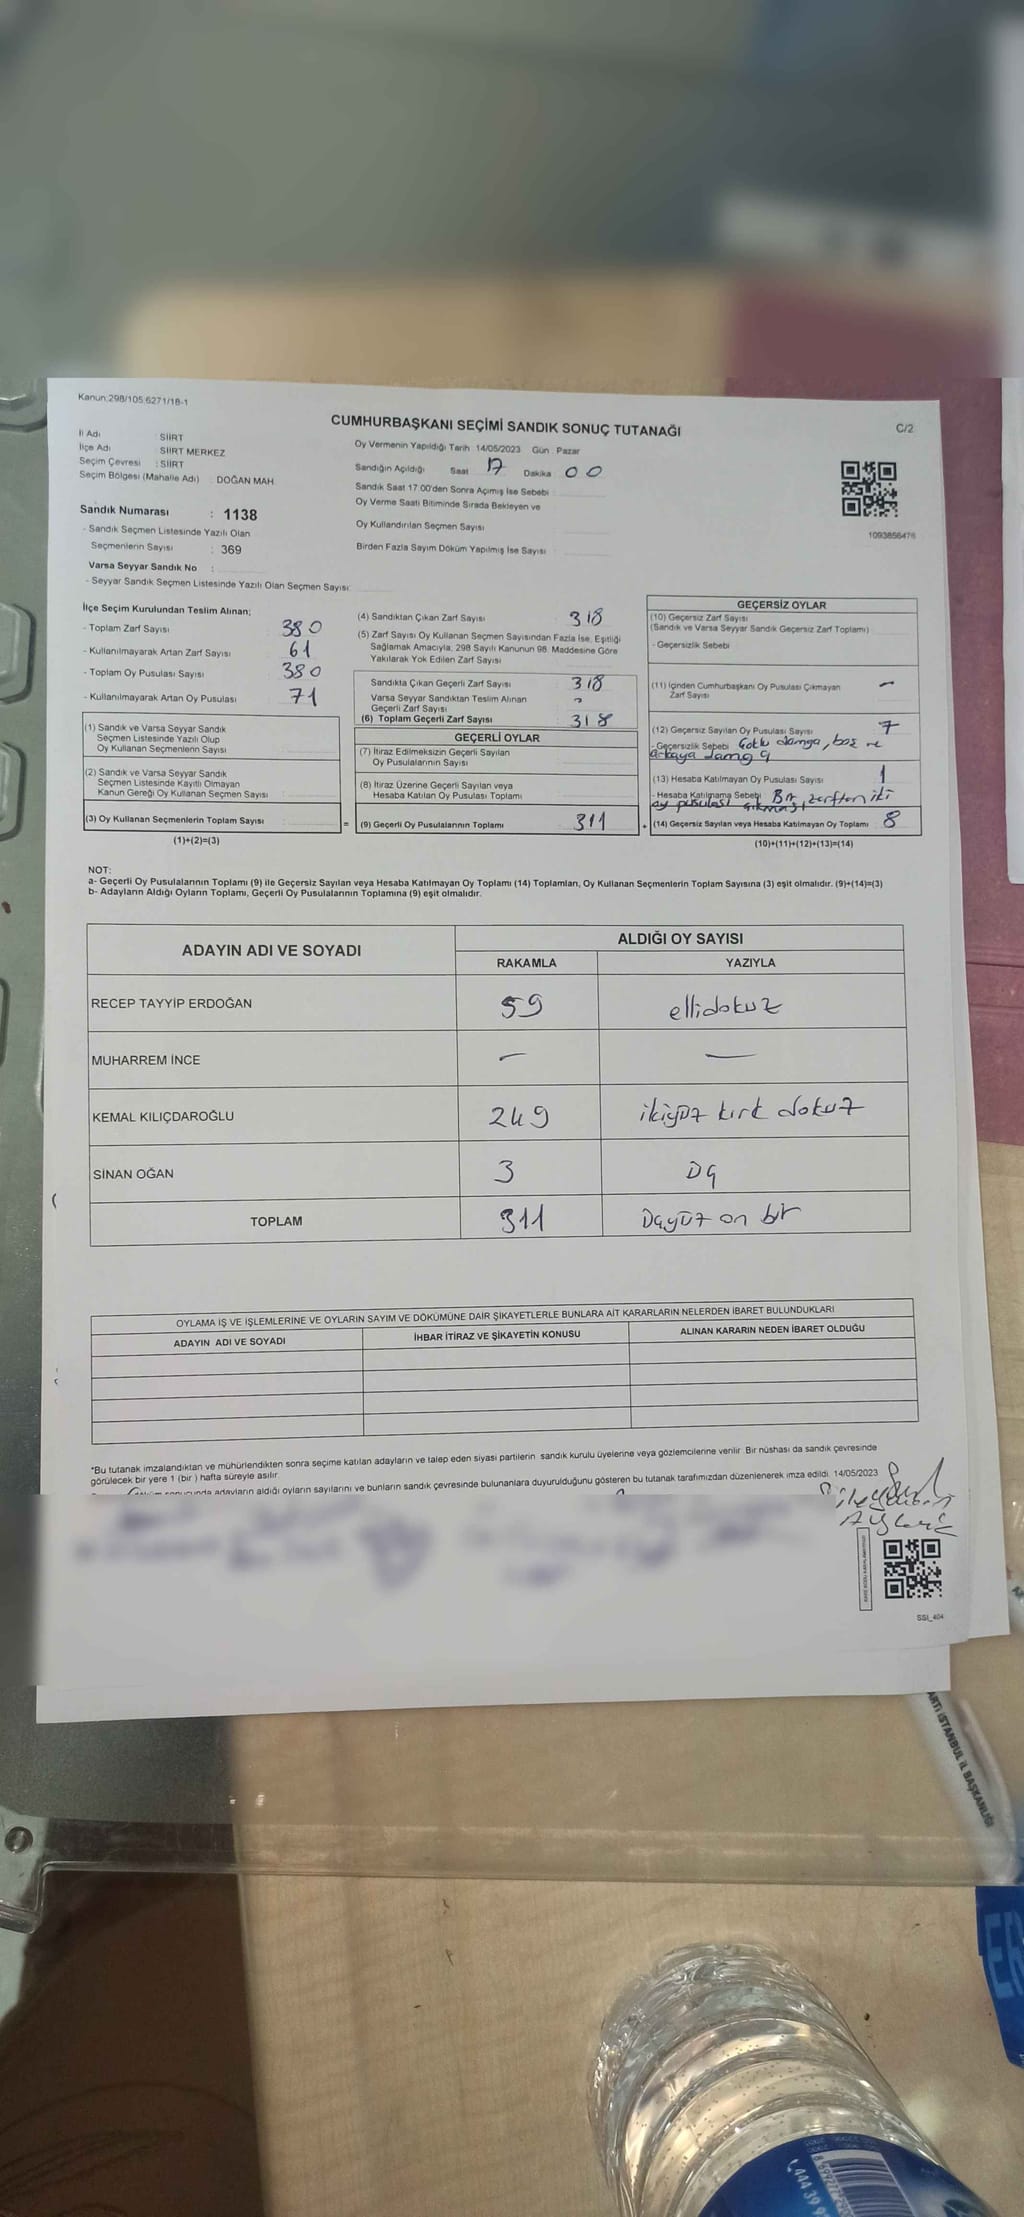 Kanun;298/105;6271/18-1
CUMHURBAŞKANI SEÇİMİ SANDIK SONUÇ TUTANAĞI
C/2
İl Adı : SİİRT
İlçe Adı SİİRT MERKEZ
Seçim Çevresi : SİİRT
Seçim Bölgesi (Mahalle Adı) : DOĞAN MAH.
Sandık Numarası : 1138
- Sandık Seçmen Listesinde Yazılı Olan
Seçmenlerin Sayısı : 369
Varsa Seyyar Sandık No :
- Seyyar Sandık Seçmen Listesinde Yazılı Olan Seçmen Sayısı:
Oy Vermenin Yapıldığı Tarih 14/05/2023 Gün Pazar
Sandığın Açıldığı Saat 17 Dakika 00
Sandık Saat 17:00'den Sonra Açımış İse Sebebi
Oy Verme Saati Bitiminde Sırada Bekleyen ve
Oy Kullandırılan Seçmen Sayısı
Birden Fazla Sayım Döküm Yapılmış İse Sayısı
1093856476
İlçe Seçim Kurulundan Teslim Alınan;
- Toplam Zarf Sayısı 380
- Kullanılmayarak Artan Zarf Sayısı 61
- Toplam Oy Pusulası Sayısı 380
- Kullanılmayarak Artan Oy Pusulası 71
(1) Sandık ve Varsa Seyyar Sandık
Seçmen Listesinde Yazılı Olup
Oy Kullanan Seçmenlerin Sayısı
(2) Sandık ve Varsa Seyyar Sandık
Seçmen Listesinde Kayıtlı Olmayan
Kanun Gereği Oy Kullanan Seçmen Sayısı
(3) Oy Kullanan Seçmenlerin Toplam Sayısı
(1)+(2)=(3)
(4) Sandıktan Çıkan Zarf Sayısı 318
(5) Zarf Sayısı Oy Kullanan Seçmen Sayısından Fazla İse, Eşitliği
Sağlamak Amacıyla, 298 Sayılı Kanunun 98. Maddesine Göre
Yakılarak Yok Edilen Zarf Sayısı
Sandıkta Çıkan Geçerli Zarf Sayısı 318
Varsa Seyyar Sandıktan Teslim Alınan
Geçerli Zarf Sayısı
(6) Toplam Geçerli Zarf Sayısı 318
GEÇERLİ OYLAR
(7) İtiraz Edilmeksizin Geçerli Sayılan
Oy Pusulalarının Sayısı
(8) İtiraz Üzerine Geçerli Sayılan veya
Hesaba Katılan Oy Pusulası Toplamı
= (9) Geçerli Oy Pusulalarının Toplamı 311
GEÇERSİZ OYLAR
(10) Geçersiz Zarf Sayısı
(Sandık ve Varsa Seyyar Sandık Geçersiz Zarf Toplamı)
- Geçersizlik Sebebi
(11) İçinden Cumhurbaşkanı Oy Pusulası Çıkmayan -
Zarf Sayısı
(12) Geçersiz Sayılan Oy Pusulası Sayısı 7
- Geçersizlik Sebebi Çoklu damga, boş ve
arkaya damga
(13) Hesaba Katılmayan Oy Pusulası Sayısı 1
- Hesaba Katılmama Sebebi Bir zarftan iki
oy pusulası çıkması
+ (14) Geçersiz Sayılan veya Hesaba Katılmayan Oy Toplamı 8
(10)+(11)+(12)+(13)=(14)
NOT:
a- Geçerli Oy Pusulalarının Toplamı (9) ile Geçersiz Sayılan veya Hesaba Katılmayan Oy Toplamı (14) Toplamları, Oy Kullanan Seçmenlerin Toplam Sayısına (3) eşit olmalıdır. (9)+(14)=(3)
b- Adayların Aldığı Oyların Toplamı, Geçerli Oy Pusulalarının Toplamına (9) eşit olmalıdır.
ADAYIN ADI VE SOYADI ALDIĞI OY SAYISI
RAKAMLA YAZIYLA
RECEP TAYYİP ERDOĞAN 59 ellidokuz
MUHARREM İNCE - -
KEMAL KILIÇDAROĞLU 249 ikiyüz kırk dokuz
SİNAN OĞAN 3 üç
TOPLAM 311 üçyüz on bir
OYLAMA İŞ VE İŞLEMLERİNE VE OYLARIN SAYIM VE DÖKÜMÜNE DAİR ŞİKAYETLERLE BUNLARA AİT KARARLARIN NELERDEN İBARET BULUNDUKLARI
ADAYIN ADI VE SOYADI İHBAR İTİRAZ VE ŞİKAYETİN KONUSU ALINAN KARARIN NEDEN İBARET OLDUĞU
*Bu tutanak imzalandıktan ve mühürlendikten sonra seçime katılan adayların ve talep eden siyasi partilerin sandık kurulu üyelerine veya gözlemcilerine verilir. Bir nüshası da sandık çevresinde
görülecek bir yere 1 (bir) hafta süreyle asılır.
sonucunda adayların aldığı oyların sayılarını ve bunların sandık çevresinde bulunanlara duyurulduğunu gösteren bu tutanak tarafımızdan düzenlenerek imza edildi. 14/05/2023
SSI_404
İSTANBUL İL BAŞKANLIĞI
ER
444 39